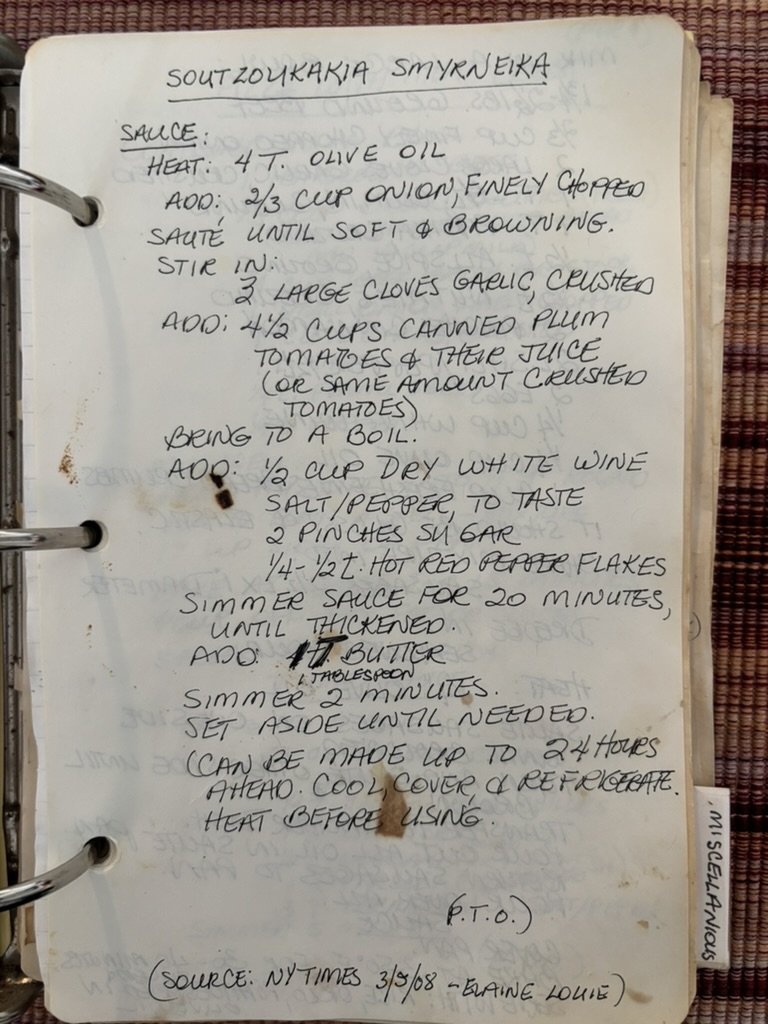 SOUTZOUKAKIA SMYRNEIKA
SAUCE:
HEAT: 4 T. OLIVE OIL
ADD: 2/3 CUP ONION, FINELY CHOPPED
SAUTÉ UNTIL SOFT & BROWNING.
STIR IN:
3 LARGE CLOVES GARLIC, CRUSHED
ADD: 4 1/2 CUPS CANNED PLUM
TOMATOES & THEIR JUICE
(OR SAME AMOUNT CRUSHED
TOMATOES)
BRING TO A BOIL.
ADD: 1/2 CUP DRY WHITE WINE
SALT/PEPPER, TO TASTE
2 PINCHES SUGAR
1/4-1/2 t. HOT RED PEPPER FLAKES
SIMMER SAUCE FOR 20 MINUTES,
UNTIL THICKENED.
ADD: 1 T. BUTTER
1 TABLESPOON
SIMMER 2 MINUTES.
SET ASIDE UNTIL NEEDED.
(CAN BE MADE UP TO 24 HOURS
AHEAD. COOL, COVER, & REFRIGERATE.
HEAT BEFORE USING.
(P.T.O.)
(SOURCE: NY TIMES 3/5/08 - ELAINE LOUIE)
MISCELLANIOUS